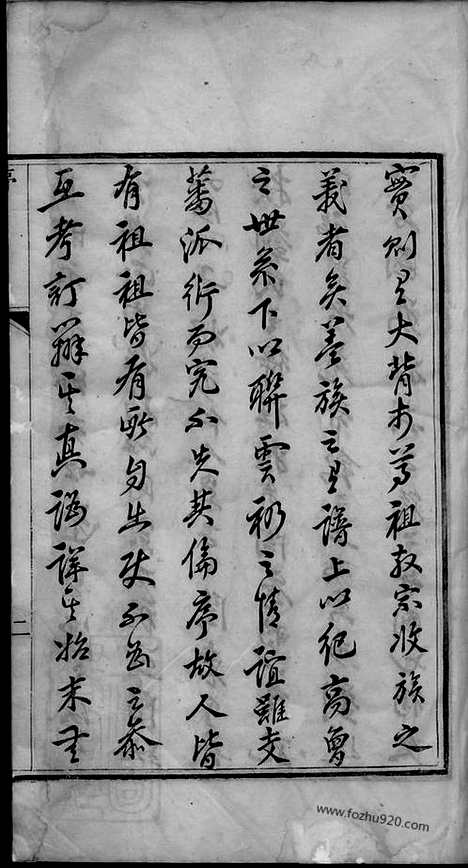 實則有大背於尊祖敬宗收族之
義者矣蓋族之有譜上以紀高曾
之世系下以聯雲礽之情誼雖支
蕃派衍而究不失其倫序故人皆
有祖祖皆有所自出使不為之參
互考訂辨其真誣詳其始末
二
www.fozhu920.com